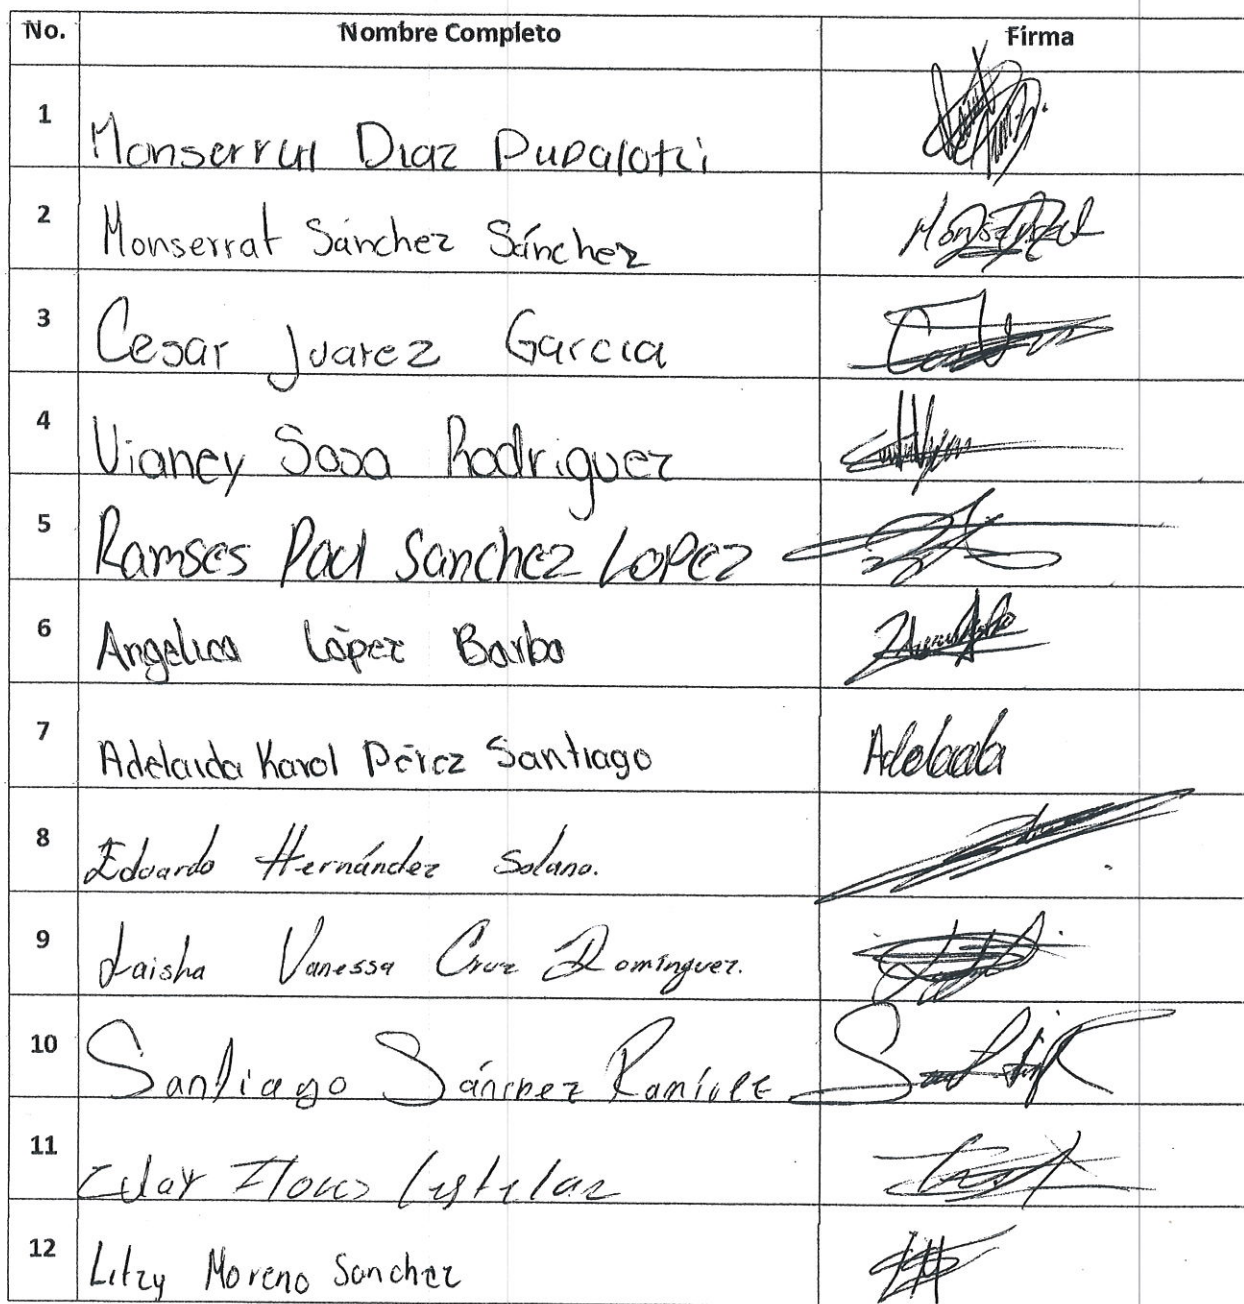 No. Nombre Completo Firma
1 Monserrat Diaz
2 Monserrat Sánchez Sánchez Monserrat
3 Cesar Juarez Garcia
4 Vianey Sosa Rodriguez
5 Ramses Paul Sanchez Lopez
6 Angelica López Barba
7 Adelaida Karol Pérez Santiago Adelaida
8 Eduardo Hernández Solano.
9 Laisha Vanessa Cruz Domínguez.
10 Santiago Sánchez Ramírez
11
12 Litzy Moreno Sanchez